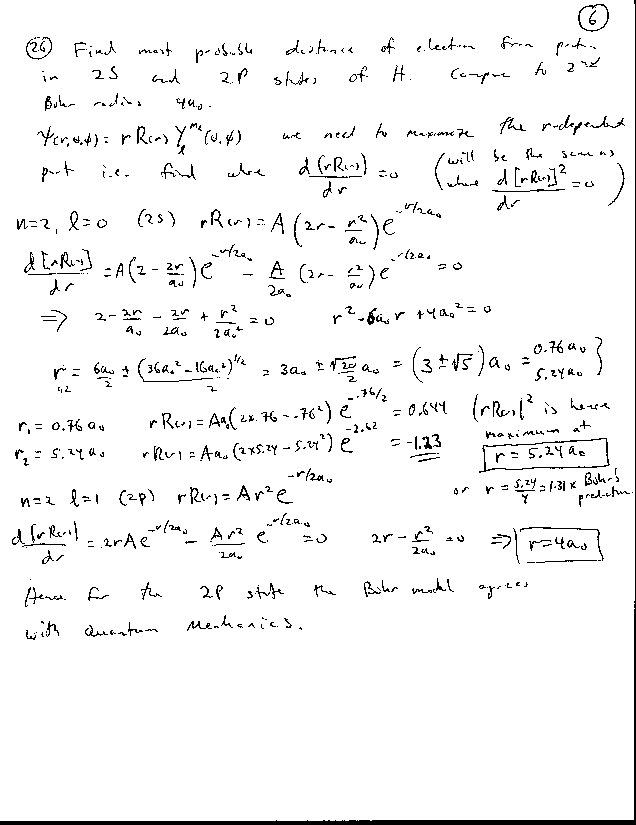 6
26 Find most probable distance of electron from proton
in 2S and 2P states of H. Compare to 2nd
Bohr radius 4a₀.
ψ(r,θ,φ) = r R(r) Yₗ^mₗ (θ,φ) we need to maximize the r-dependent
part i.e. find where d[rR(r)]/dr = 0 (will be the same as where d[rR(r)]²/dr = 0)
n=2, l=0 (2S) rR(r) = A(2r - r²/a₀)e^(-r/2a₀)
d[rR(r)]/dr = A(2 - 2r/a₀)e^(-r/2a₀) - A/2a₀ (2r - r²/a₀)e^(-r/2a₀) = 0
⇒ 2 - 2r/a₀ - 2r/2a₀ + r²/2a₀² = 0 r² - 6a₀r + 4a₀² = 0
r₁,₂ = 6a₀/2 ± (36a₀² - 16a₀²)^(1/2)/2 = 3a₀ ± √20/2 a₀ = (3 ± √5)a₀ = 0.76a₀ 5.24a₀ }
r₁ = 0.76a₀ rR(r) = Aa₀(2x.76 - .76²)e^(-.76/2) = 0.644 [rR(r)]² is hence
maximum at
r₂ = 5.24a₀ rR(r) = Aa₀(2x5.24 - 5.24²)e^(-2.62) = -1.23 r = 5.24a₀
or r = 5.24/4 = 1.31 x Bohr's prediction
n=2 l=1 (2p) rR(r) = Ar²e^(-r/2a₀)
d[rR(r)]/dr = 2rAe^(-r/2a₀) - Ar²/2a₀ e^(-r/2a₀) = 0 2r - r²/2a₀ = 0 ⇒ r = 4a₀
Hence for the 2P state the Bohr model agrees
with Quantum Mechanics.